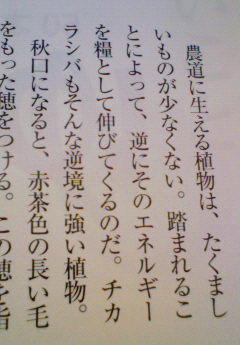 農道に生える植物は、たくまし
いものが少なくない。踏まれるこ
とによって、逆にそのエネルギー
を糧として伸びてくるのだ。チカ
ラシバもそんな逆境に強い植物。
秋口になると、赤茶色の長い毛
をもった穂をつける。この穂を皆